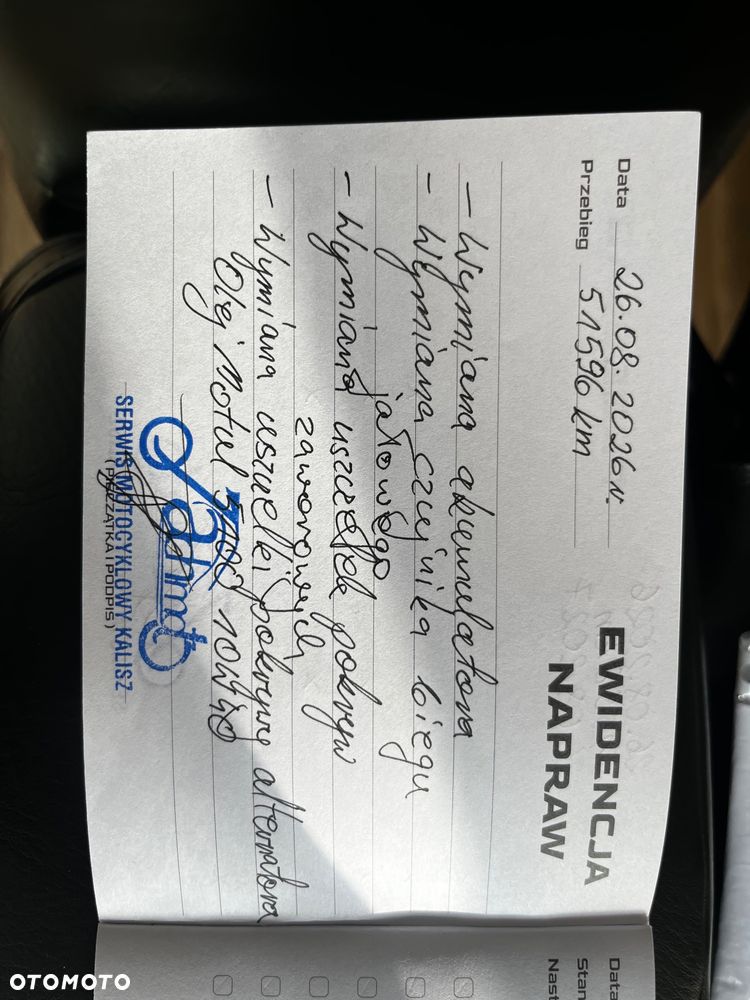 EWIDENCJA
NAPRAW
Data 26.08.2026r.
Przebieg 51596 km
- Wymiana akumulatora
- Wymiana czujnika biegu
jałowego
- Wymiana uszczelek pokryw
zaworowych
- Wymiana uszczelki pokrywy alternatora
Olej Motul 5100 10W40
SERWIS MOTOCYKLOWY KALISZ
(PIECZĄTKA I PODPIS)
Data
Stan
Nast
OTOMOTO